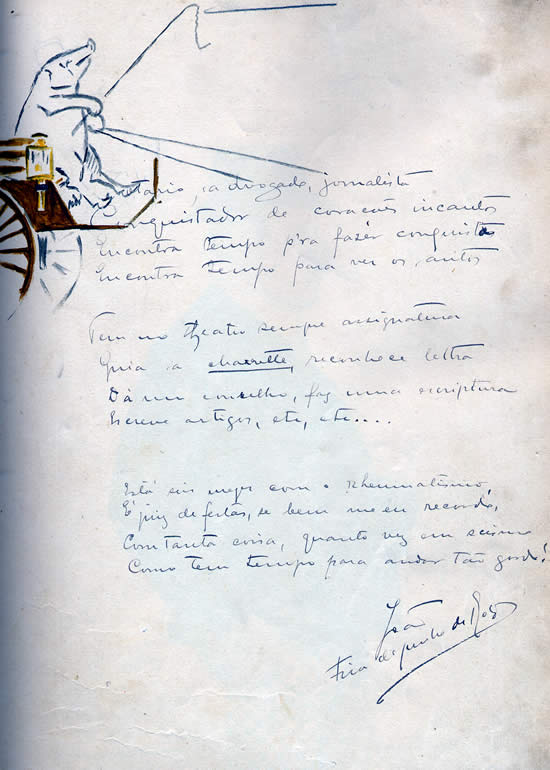 Notario, advogado, jornalista
Conquistador de corações incautos
Encontra tempo p'ra fazer conquistas
Encontra tempo para ver os autos
Tem no theatro sempre assignatura
Guia a charrette, reconhece lettra
Dá um conselho, faz uma escriptura
Escreve artigos, etc, etc....
Está seis mezes com o Rheumatismo,
É juiz de festas, se bem me eu recordo,
Com tanta coisa, quanta vez eu scismo
Como tem tempo para andar tão gordo!
João